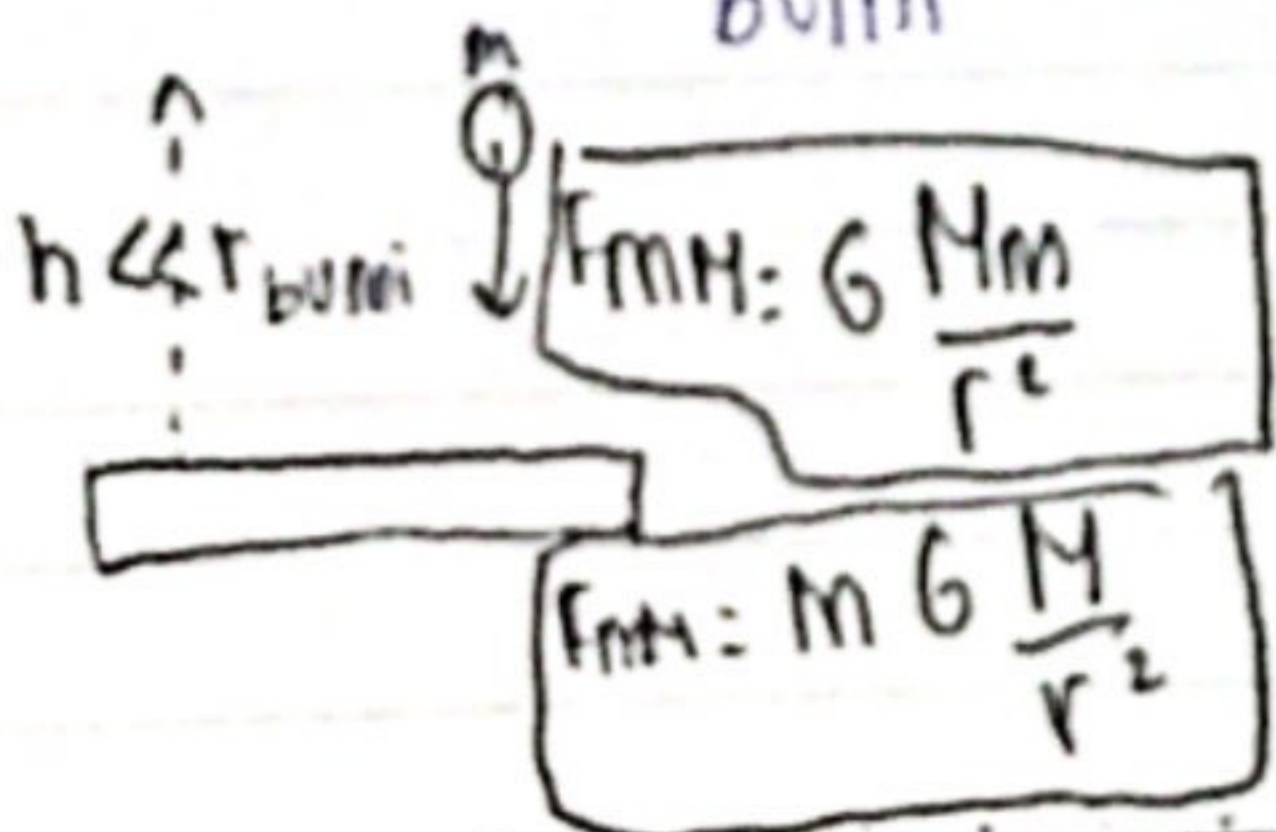 bumi
m
h << r bumi
FmM = G Mm / r²
FmM = m G M / r²